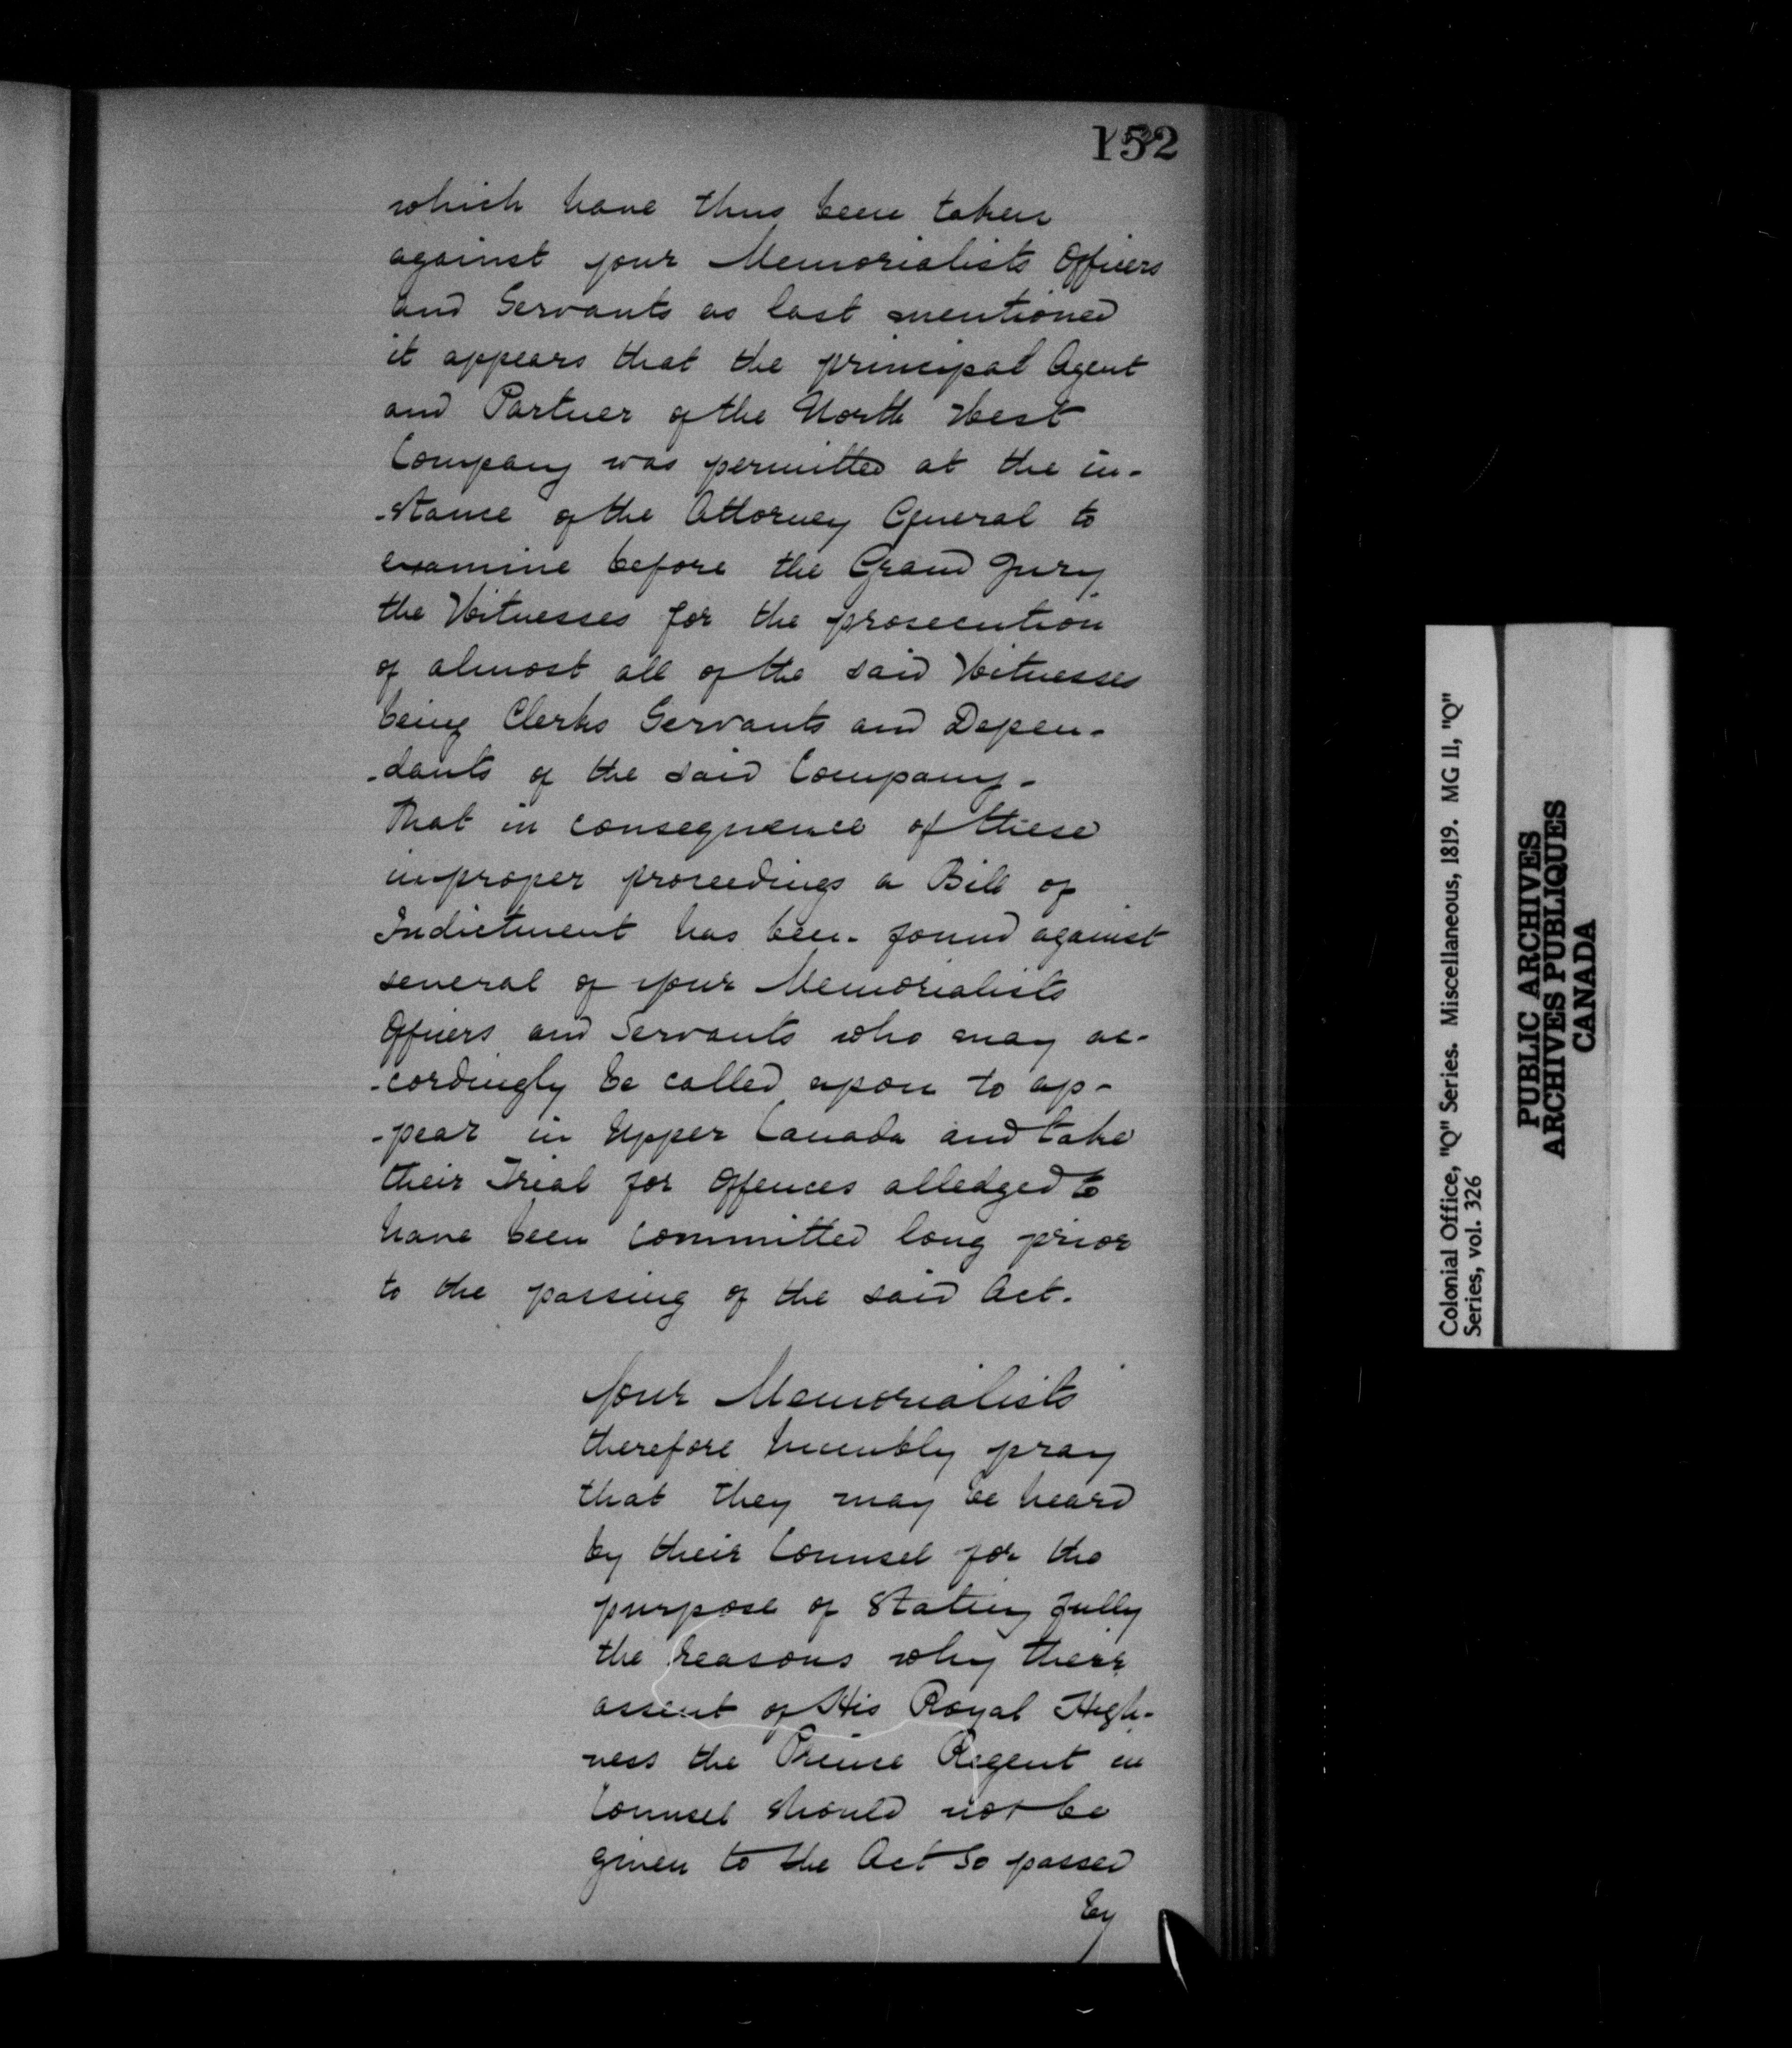 152
which have thus been taken
against your Memorialists Officers
and Servants as last mentioned
it appears that the principal Agent
and Partner of the North West
Company was permitted at the in-
-stance of the Attorney General to
examine before the Grand Jury
the Witnesses for the prosecution
of almost all of the said Witnesses
being Clerks Servants and Depen-
-dants of the said Company -
That in consequence of these
improper proceedings a Bill of
Indictment has been found against
several of your Memorialists
Officers and Servants who may ac-
-cordingly be called upon to ap-
-pear in Upper Canada and take
their Trial for Offences alledged to
have been committed long prior
to the passing of the said Act.
Your Memorialists
therefore humbly pray
that they may be heard
by their Counsel for the
purpose of Stating fully
the reasons why their
assent of His Royal High-
ness the Prince Regent in
Counsel should not be
given to the Act so passed
by
Colonial Office, "Q" Series. Miscellaneous, 1819. MG 11, "Q"
Series, vol. 326
PUBLIC ARCHIVES
ARCHIVES PUBLIQUES
CANADA